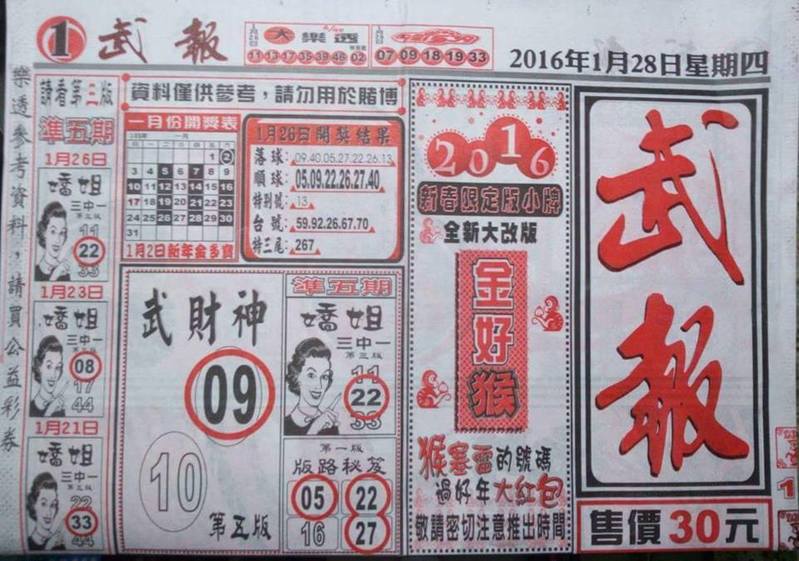 1 武報
大樂透
11 13 17 35 39 46 02
07 09 18 19 33
2016年1月28日星期四
樂透參考資料，請買公益彩券
請看第三版
準五期
1月26日
嬌姐
三中一
第三版
11
22
33
1月23日
嬌姐
三中一
第三版
08
17
44
1月21日
嬌姐
三中一
第三版
22
33
44
資料僅供參考，請勿用於賭博
一月份開獎表
日 一 二 三 四 五 六
1 2
3 4 5 6 7 8 9
10 11 12 13 14 15 16
17 18 19 20 21 22 23
24 25 26 27 28 29 30
31
1月2日新年金多寶
1月26日開獎結果
落球：09.40.05.27.22.26.13
順球：05.09.22.26.27.40
特別號：13
台號：59.92.26.67.70
特三尾：267
武財神
09
10
第五版
準五期
嬌姐
三中一
第三版
11
22
33
第一版
版路秘笈
05 22
16 27
2016
新春限定版小牌
全新大改版
金好猴
猴塞雷的號碼
過好年大紅包
敬請密切注意推出時間
武報
售價30元